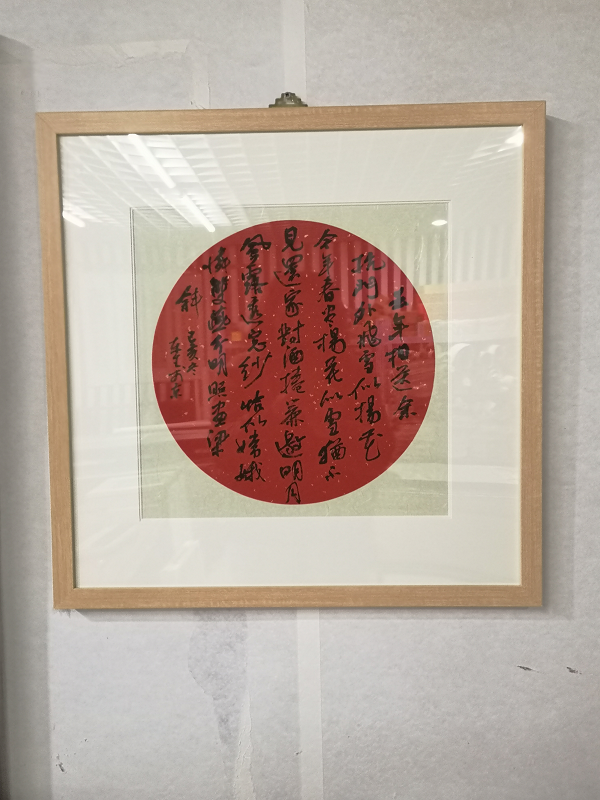 去年相送余
杭門外飛雪似楊花
今年春尽楊花似雪猶不
見還家對酒捲簾邀明月
風露透窗紗恰似嫦娥
憐雙燕分明照畫梁
斜
己亥冬